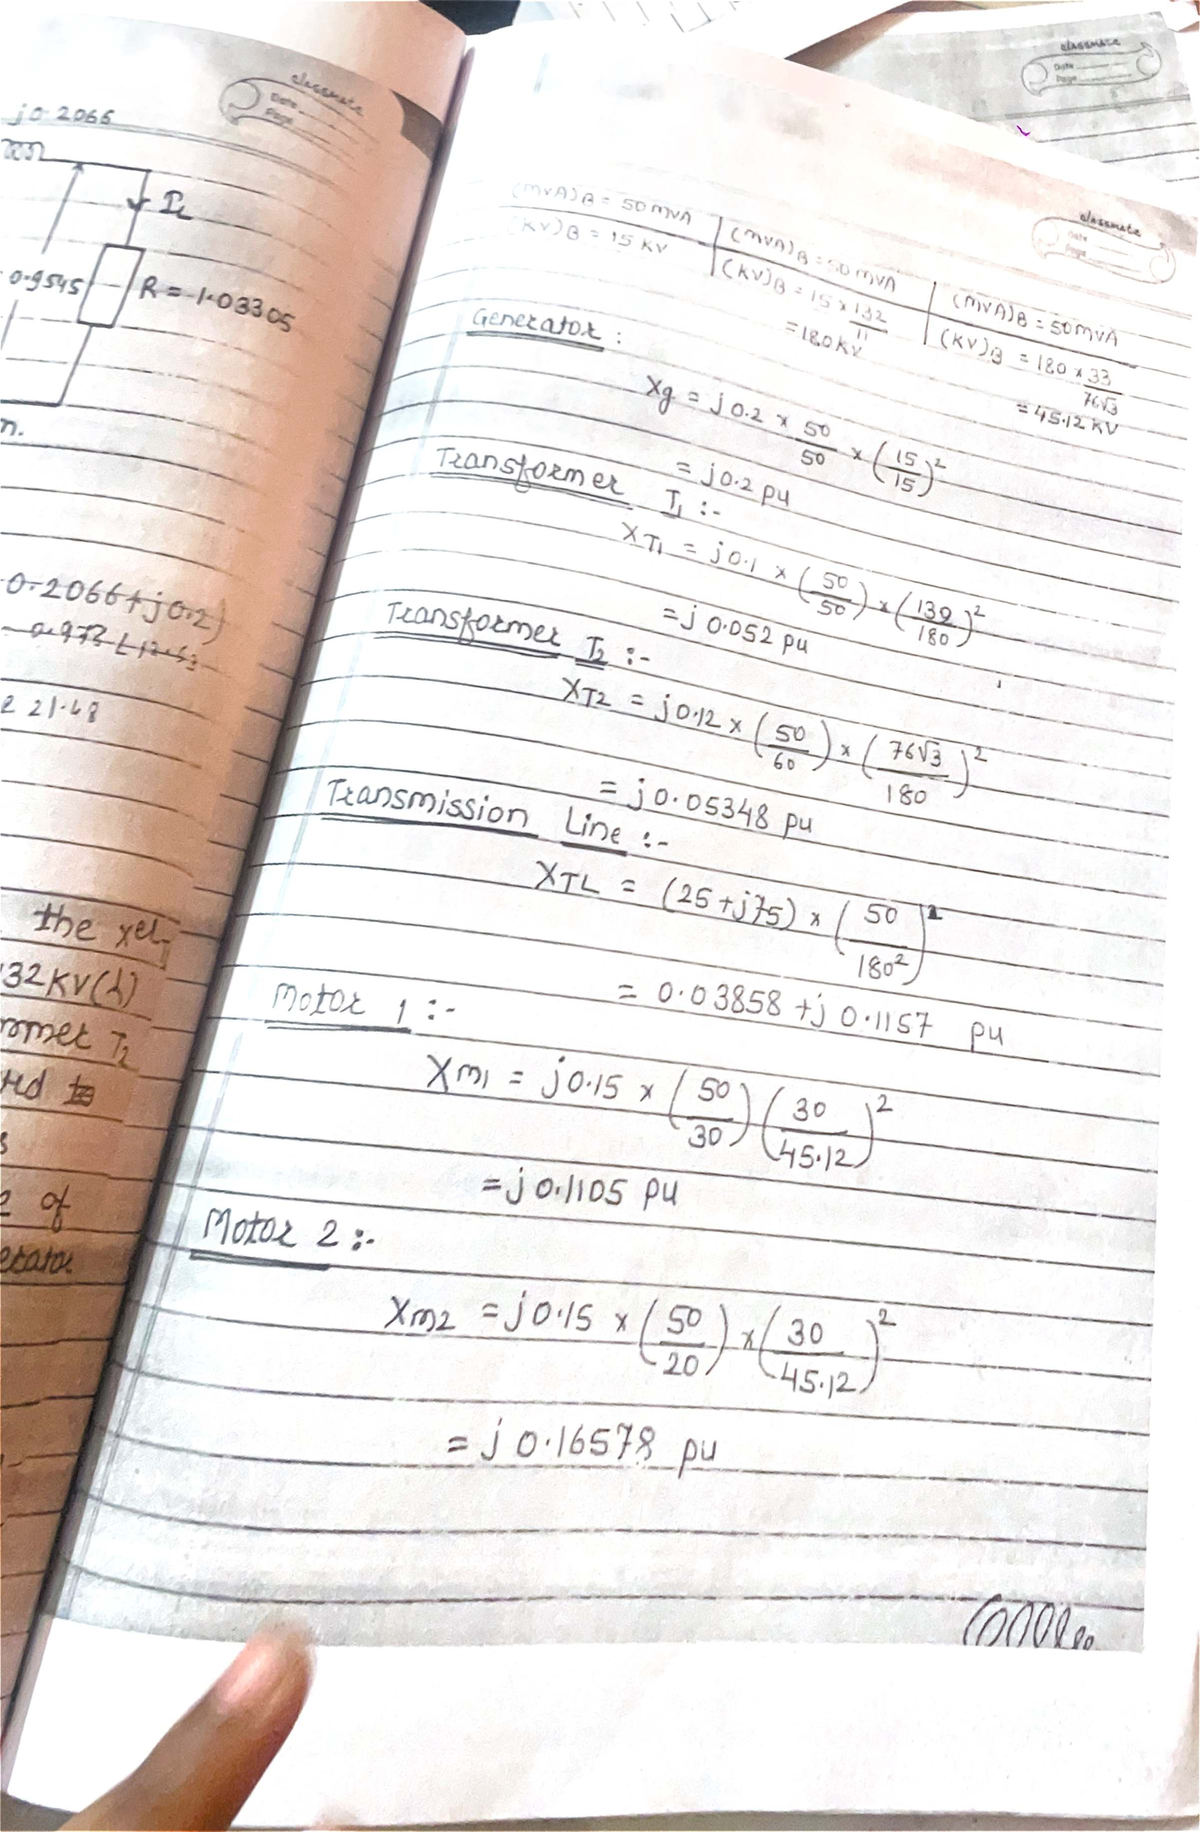 classmate
Date
Page
j0.2066
IL
0.9545
R = 1.03305
n.
0.2066+j0.2)
0.973∠12.53
e 21.48
the
132KV(λ)
T2
to
of
classmate
Date
Page
classmate
Date
Page
(MVA)B = 50 MVA | (MVA)B = 50 MVA | (MVA)B = 50 MVA
(KV)B = 15 KV | (KV)B = 15 × 132/11 | (KV)B = 180 × 33/76√3
= 180 KV
= 45.12 KV
Generator :
Xg = j0.2 × 50/50 × (15/15)²
= j0.2 pu
Transformer T1 :-
XT1 = j0.1 × (50/50) × (132/180)²
= j 0.052 pu
Transformer T2 :-
XT2 = j0.12 × (50/60) × (76√3/180)²
= j0.05348 pu
Transmission Line :-
XTL = (25 + j75) × (50/180²)
= 0.03858 + j 0.1157 pu
Motor 1 :-
Xm1 = j0.15 × (50/30) (30/45.12)²
= j 0.1105 pu
Motor 2 :-
Xm2 = j0.15 × (50/20) × (30/45.12)²
= j 0.16578 pu